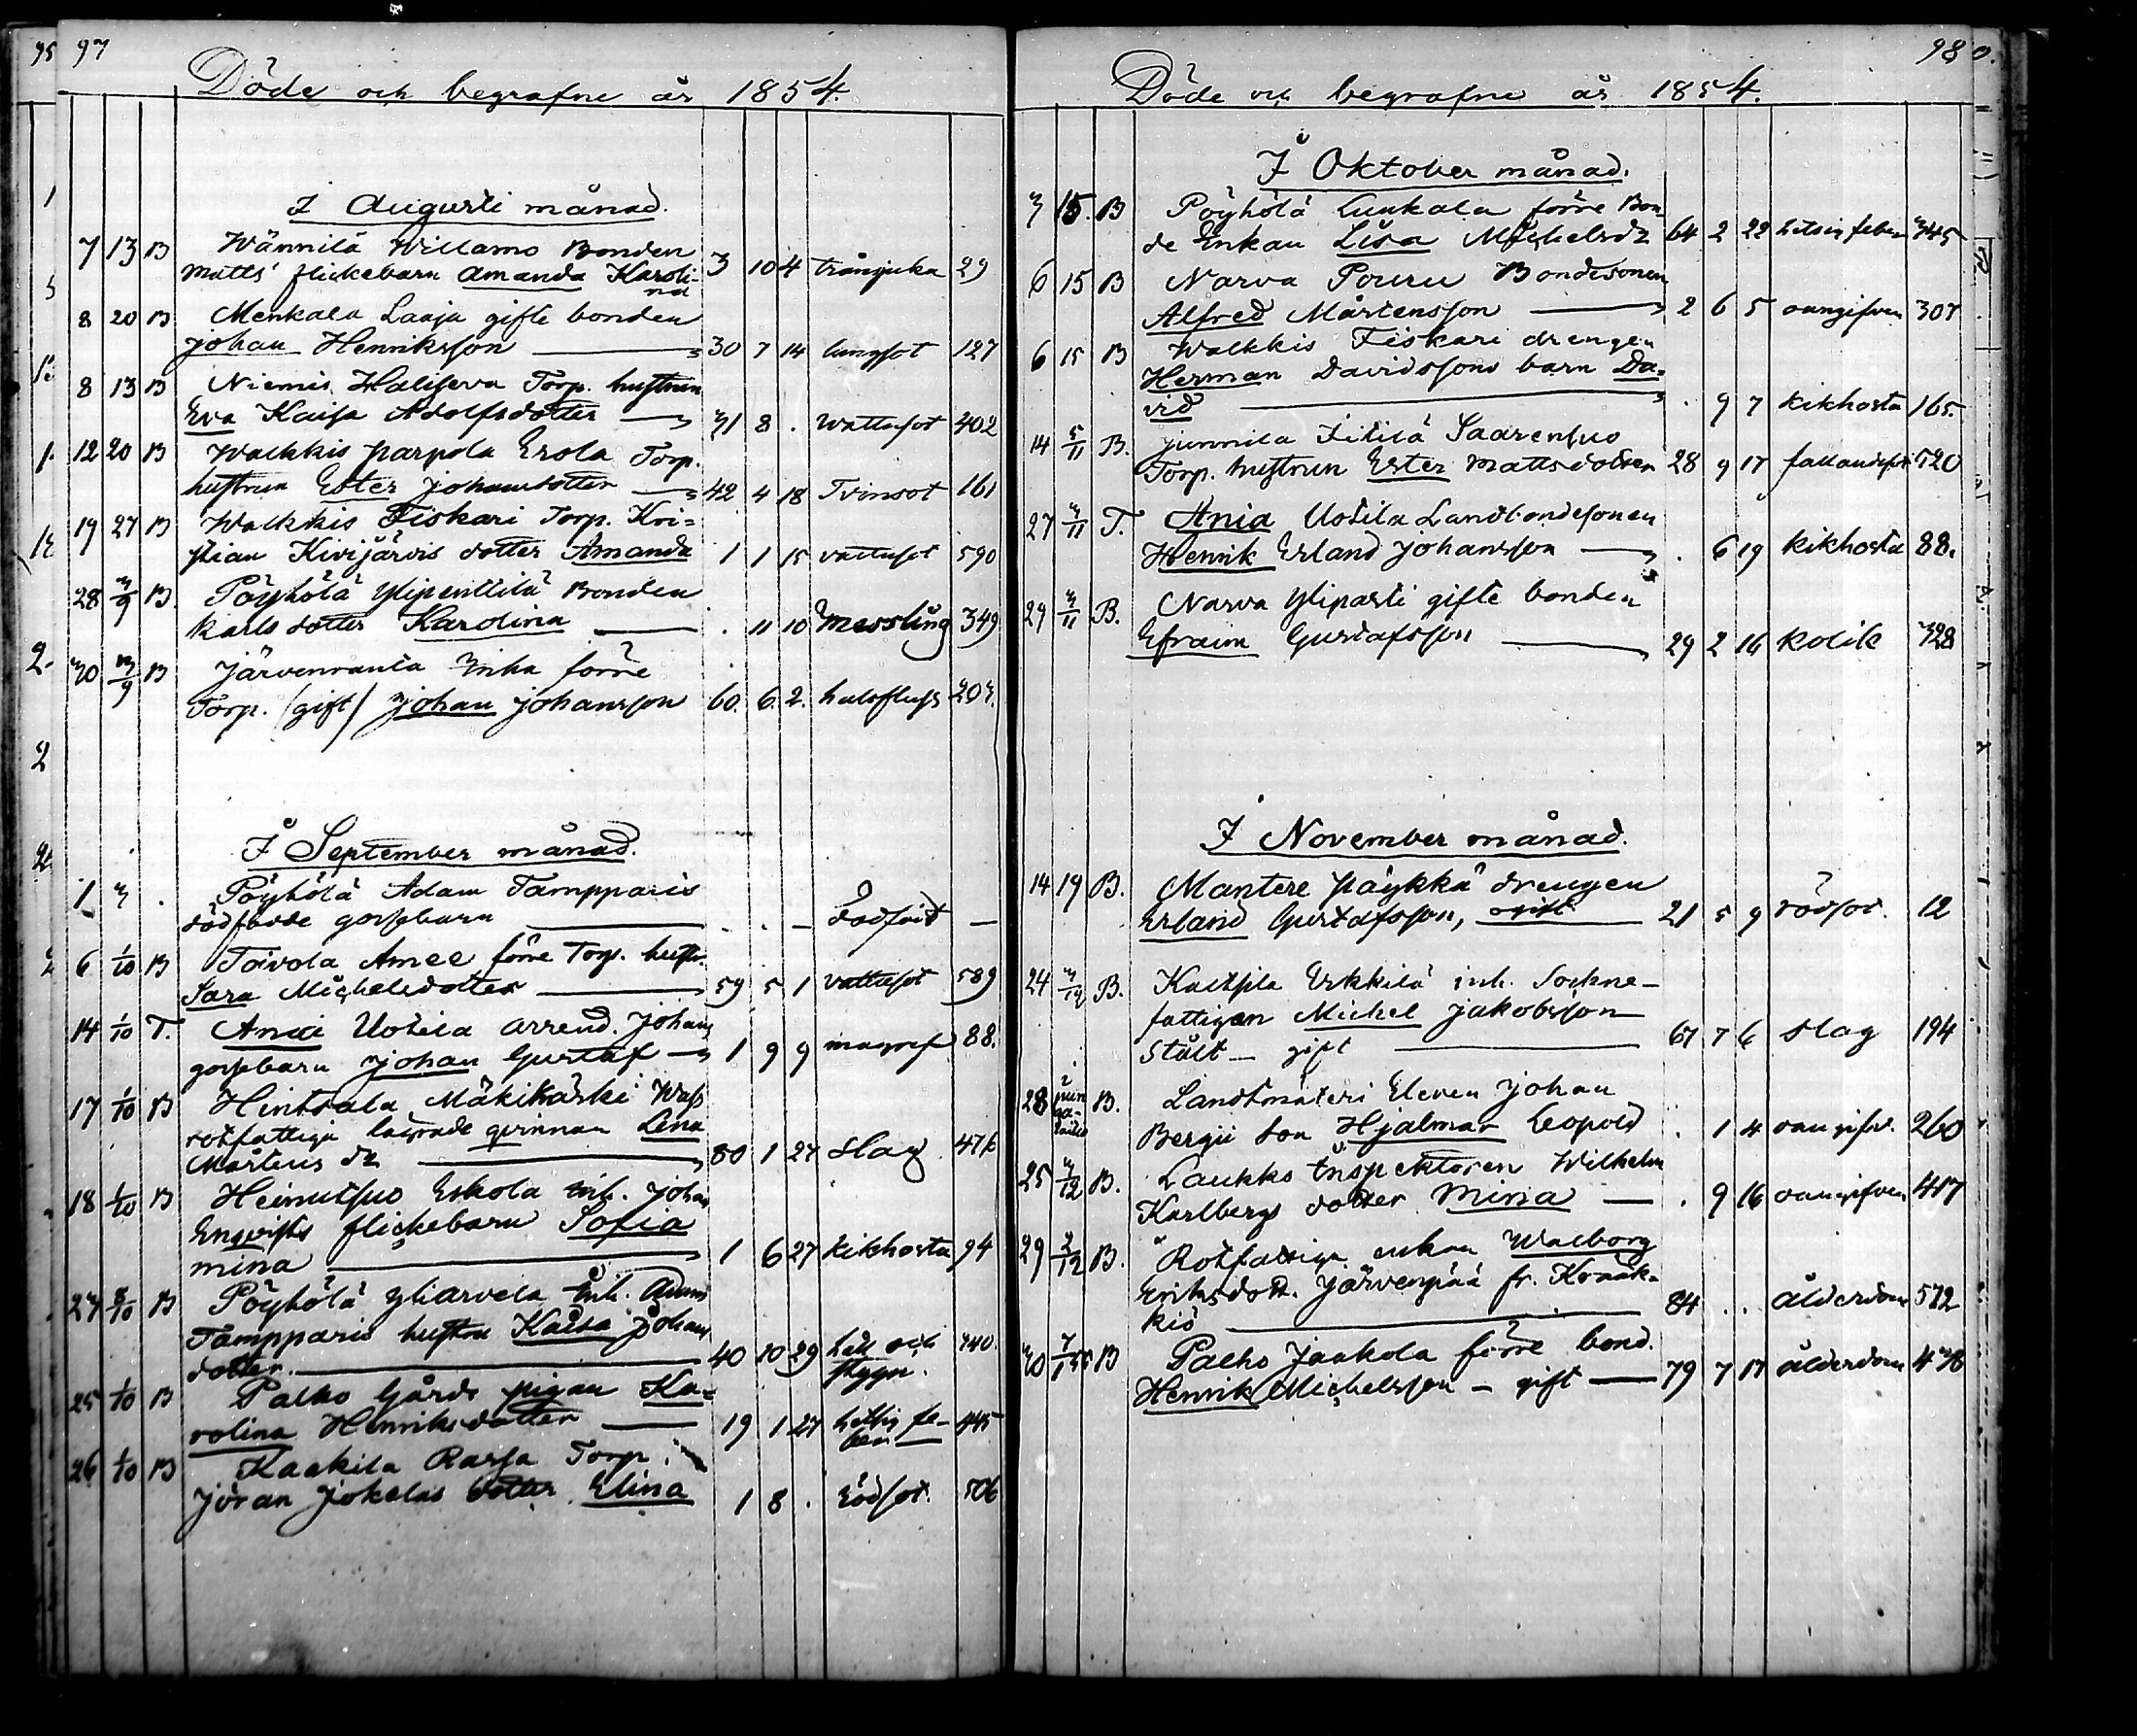 97
Döde och begrafne år 1854.
I Augusti månad.
7 13 B Wännilä Willamo Bonden
Matts flickebarn Amanda Karoli-
na 3 10 4 trånsjuka 29
8 20 B Menkala Laaja gifte bonden
Johan Henriksson 30 7 14 lungsot 127
8 13 B Niemis Torp. hustrun
Eva Kaisa Adolfsdotter 71 8 . Wattusot 402
12 20 B Walkkis Parpola Erola Torp.
hustrun Ester Johansdotter 42 4 18 Tvinsot 161
19 27 B Walkkis Fiskari Torp. Kri=
stian Kivijärvis dotter Amanda 1 1 15 vattusot 590
28 3/9 B. Pöyhölä Ylipenttilä Bonden
Karls dotter Karolina . 11 10 Messling 349
30 3/9 B Järvenranta förre
Torp. (gift) Johan Johansson 60. 6. 2. halsfluss 203.
I September månad.
1 3 . Pöyhölä Adam Tampparis
dödfödde gossebarn . . - dödfödt -
6 1/10 B Toivola Amee förre Torp. hustr.
Sara Michelsdotter 59 5 1 vattusot 589
14 1/10 T. Ania Uotila arrend. Johans
gossebarn Johan Gustaf 1 9 9 magref 88.
17 1/10 B Hintsala Mäkikärki
rotfattiga lägrade qvinnan Lena
Mårtens dr 80 1 27 slag 476
18 1/10 B Heinutsuo Eskola inh. Johan
Enqvists flickebarn Sofia
mina 1 6 27 kikhosta 94
23 8/10 B Pöyhölä Yliarvela inh.
Tampparis hustru Kaisa Johans
dotter. 40 10 29 håll och
stygn. 340.
25 1/10 B Palho Gårds pigan Ka=
rolina Henriksdotter 19 1 27 hettig fe-
ber 445
26 1/10 B Kaakila Rassa Torp.
Jöran Jokelas dotter Elina 1 8 . rödsot. 506
98
Döde och begrafne år 1854.
I Oktober månad.
3 15. B Pöyhölä Luukala förre Bon
de Enkan Lisa Michelsdr 64 2 22 hetsig feber 345
6 15 B Narva Pouru Bondesonen
Alfred Mårtensson 2 6 5 oangifven 307
6 15 B Walkkis Fiskari drengen
Herman Davidssons barn Da=
vid . 9 7 kikhosta 165.
14 5/11 B. Junnila Titilä Saarensuo
Torp. hustrun Ester Mattsdotter 28 9 17 fallandesot 520
27 3/11 T. Ania Uotila Landtbondesonen
Henrik Erland Johansson . 6 19 kikhosta 88.
29 3/11 B. Narva Yliparti gifte bonden
Efraim Gustafsson 29 2 16 kolik 328
I November månad.
14 19 B. Mantere Päykkä drengen
Erland Gustafsson, ogift 21 5 9 rödsot. 12
24 3/12 B. Erkkilä inh. Sockne-
fattigen Michel Jakobsson
Stålt - gift 67 7 6 slag 194
28 B. Landtmäteri Eleven Johan
Bergii son Hjalmar Leopold . 1 4 oangifv. 260
25 3/12 B. Laukko Inspektoren Wilhelm
Karlbergs dotter Mina . 9 16 oangifven 417
29 3/12 B. Rotfattiga enkan Walborg
Eriksdott. Järvenpää fr. Kraak-
kis 84 . . ålderdom 572
30 7/1 55 B Palho Jaakola förre bond.
Henrik Michelsson - gift 79 7 17 ålderdom 438